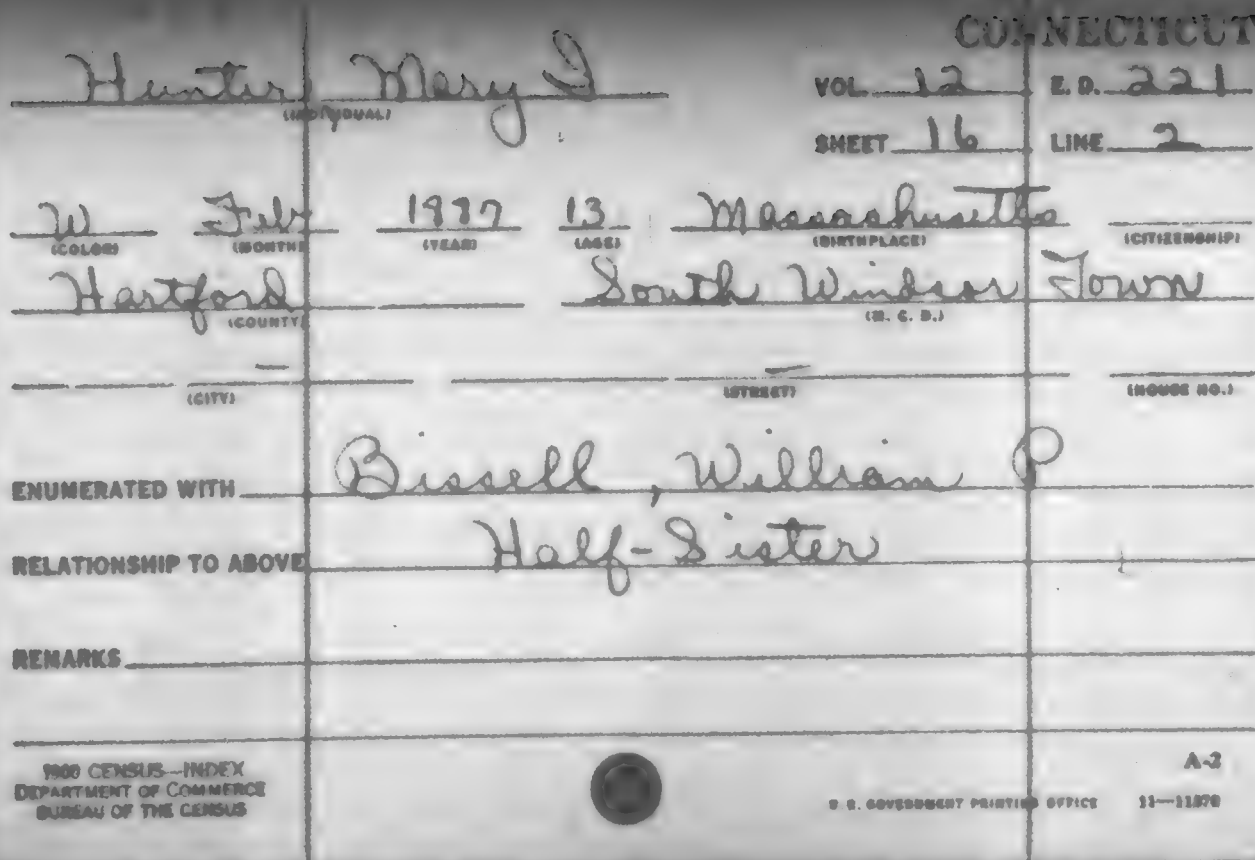 CONNECTICUT
Hunter, Mary I
(INDIVIDUAL)
VOL. 12 E. D. 221
SHEET 16 LINE 2
W Feb 1887 13 Massachusetts
(COLOR) (MONTH) (YEAR) (AGE) (BIRTHPLACE) (CITIZENSHIP)
Hartford South Windsor Town
(COUNTY) (M. C. D.)
— —
(CITY) (STREET) (HOUSE NO.)
ENUMERATED WITH Bissell, William P
RELATIONSHIP TO ABOVE Half-Sister
REMARKS
1900 CENSUS—INDEX
DEPARTMENT OF COMMERCE
BUREAU OF THE CENSUS
A-2
U. S. GOVERNMENT PRINTING OFFICE